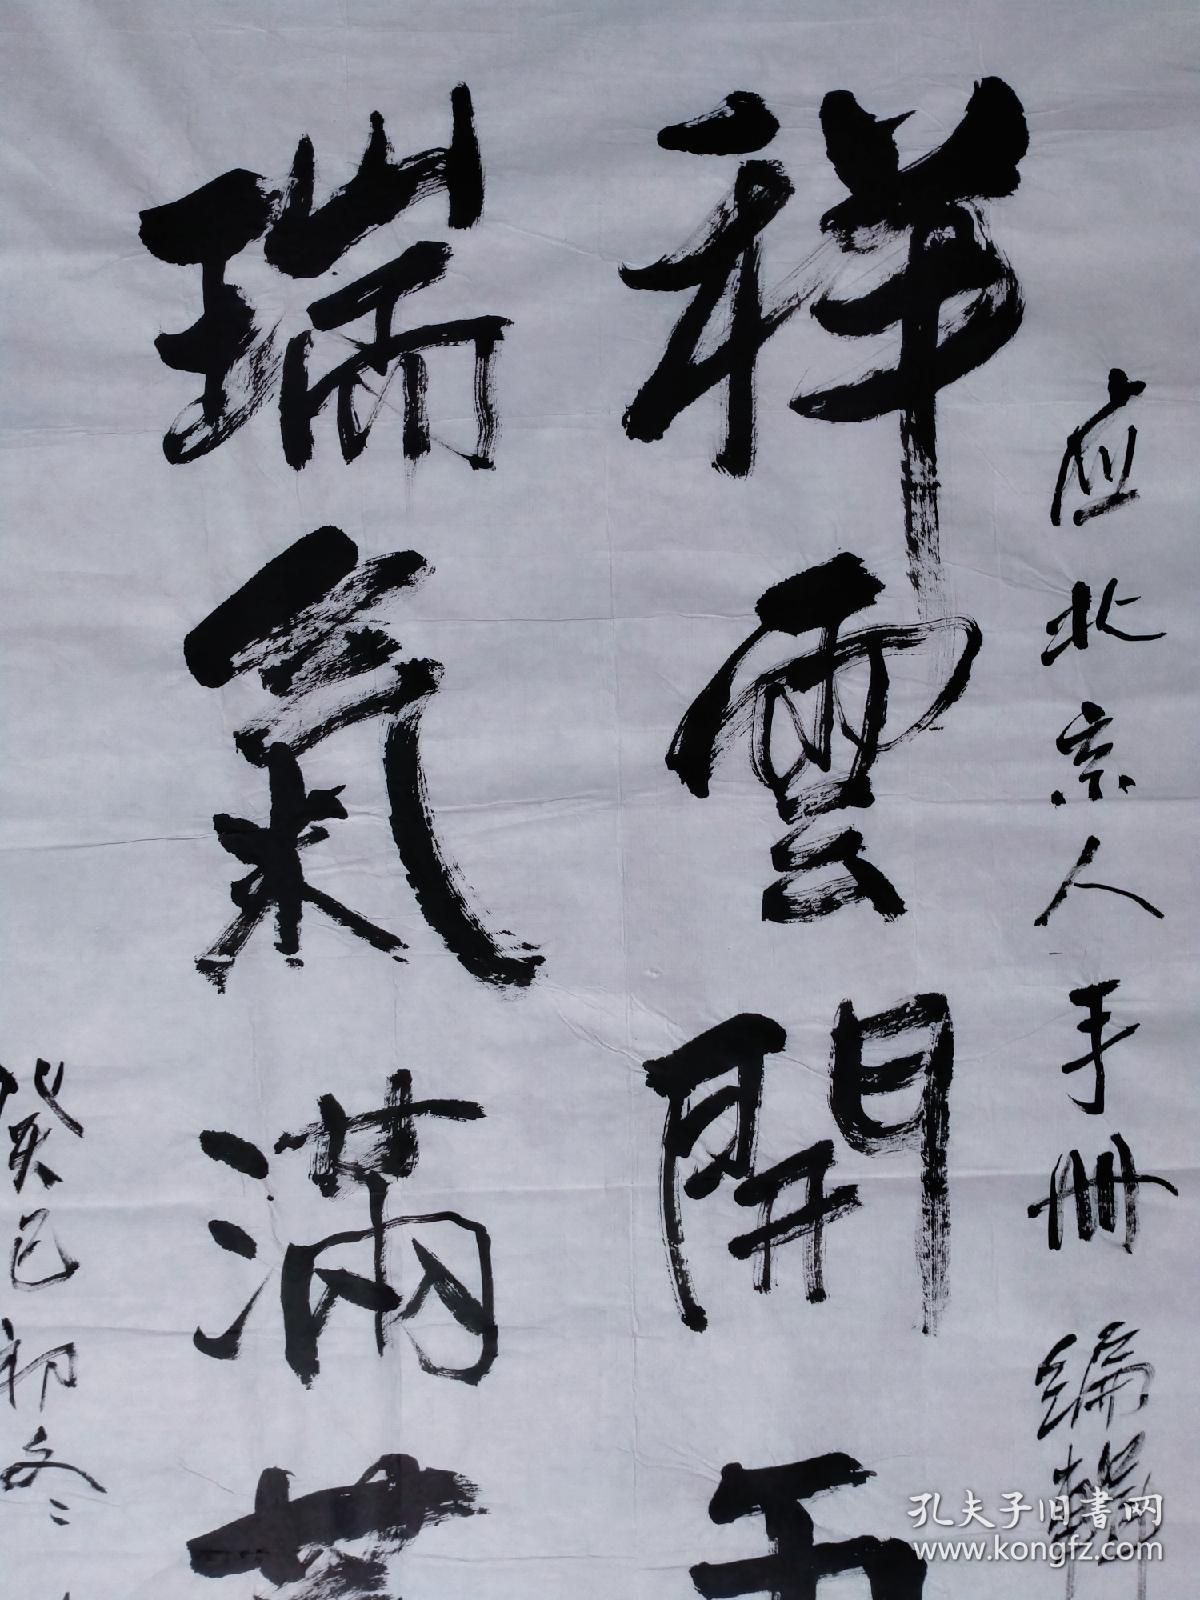 应北京人手册 编辑
祥雲開五
瑞氣滿
癸巳初冬
孔夫子旧書网
www.kongfz.com